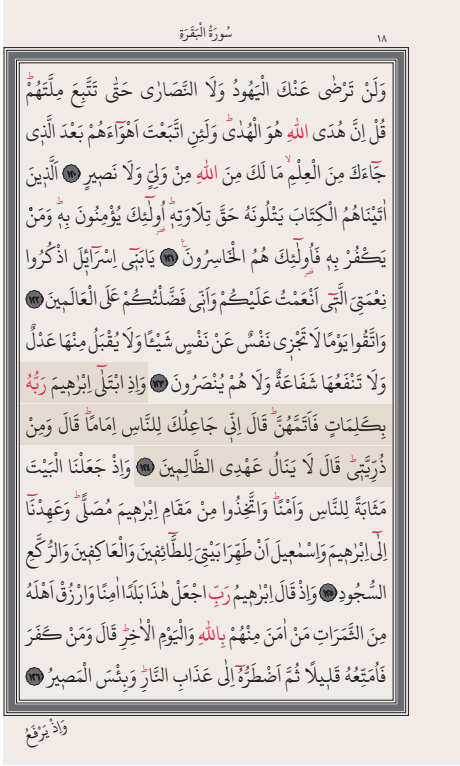 سُورَةُ الْبَقَرَةِ
١٨
وَلَنْ تَرْضٰى عَنْكَ الْيَهُودُ وَلَا النَّصَارٰى حَتّٰى تَتَّبِعَ مِلَّتَهُمْۜ
قُلْ اِنَّ هُدَى اللّٰهِ هُوَ الْهُدٰىۜ وَلَئِنِ اتَّبَعْتَ اَهْوَٓاءَهُمْ بَعْدَ الَّذ۪ي
جَٓاءَكَ مِنَ الْعِلْمِۙ مَا لَكَ مِنَ اللّٰهِ مِنْ وَلِيٍّ وَلَا نَص۪يرٍ ﴿١٢٠﴾ اَلَّذ۪ينَ
اٰتَيْنَاهُمُ الْكِتَابَ يَتْلُونَهُ حَقَّ تِلَاوَتِه۪ۜ اُو۬لٰٓئِكَ يُؤْمِنُونَ بِه۪ۜ وَمَنْ
يَكْفُرْ بِه۪ فَاُو۬لٰٓئِكَ هُمُ الْخَاسِرُونَ۟ ﴿١٢١﴾ يَابَن۪ٓي اِسْرَٓاء۪يلَ اذْكُرُوا
نِعْمَتِيَ الَّت۪ٓي اَنْعَمْتُ عَلَيْكُمْ وَاَنّ۪ي فَضَّلْتُكُمْ عَلَى الْعَالَم۪ينَ ﴿١٢٢﴾
وَاتَّقُوا يَوْمًا لَا تَجْز۪ي نَفْسٌ عَنْ نَفْسٍ شَيْـًٔا وَلَا يُقْبَلُ مِنْهَا عَدْلٌ
وَلَا تَنْفَعُهَا شَفَاعَةٌ وَلَا هُمْ يُنْصَرُونَ ﴿١٢٣﴾ وَاِذِ ابْتَلٰٓى اِبْرٰه۪يمَ رَبُّهُ
بِكَلِمَاتٍ فَاَتَمَّهُنَّۜ قَالَ اِنّ۪ي جَاعِلُكَ لِلنَّاسِ اِمَامًاۜ قَالَ وَمِنْ
ذُرِّيَّت۪يۜ قَالَ لَا يَنَالُ عَهْدِي الظَّالِم۪ينَ ﴿١٢٤﴾ وَاِذْ جَعَلْنَا الْبَيْتَ
مَثَابَةً لِلنَّاسِ وَاَمْنًاۜ وَاتَّخِذُوا مِنْ مَقَامِ اِبْرٰه۪يمَ مُصَلًّىۜ وَعَهِدْنَٓا
اِلٰٓى اِبْرٰه۪يمَ وَاِسْمٰع۪يلَ اَنْ طَهِّرَا بَيْتِيَ لِلطَّٓائِف۪ينَ وَالْعَاكِف۪ينَ وَالرُّكَّعِ
السُّجُودِ ﴿١٢٥﴾ وَاِذْ قَالَ اِبْرٰه۪يمُ رَبِّ اجْعَلْ هٰذَا بَلَدًا اٰمِنًا وَارْزُقْ اَهْلَهُ
مِنَ الثَّمَرَاتِ مَنْ اٰمَنَ مِنْهُمْ بِاللّٰهِ وَالْيَوْمِ الْاٰخِرِۜ قَالَ وَمَنْ كَفَرَ
فَاُمَتِّعُهُ قَل۪يلًا ثُمَّ اَضْطَرُّهُٓ اِلٰى عَذَابِ النَّارِۜ وَبِئْسَ الْمَص۪يرُ ﴿١٢٦﴾
وَاِذْ يَرْفَعُ